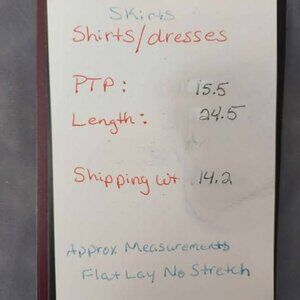 Skirts
Shirts/dresses
PTP: 15.5
Length: 24.5
Shipping wt 14.2
Approx Measurements
Flat Lay No Stretch